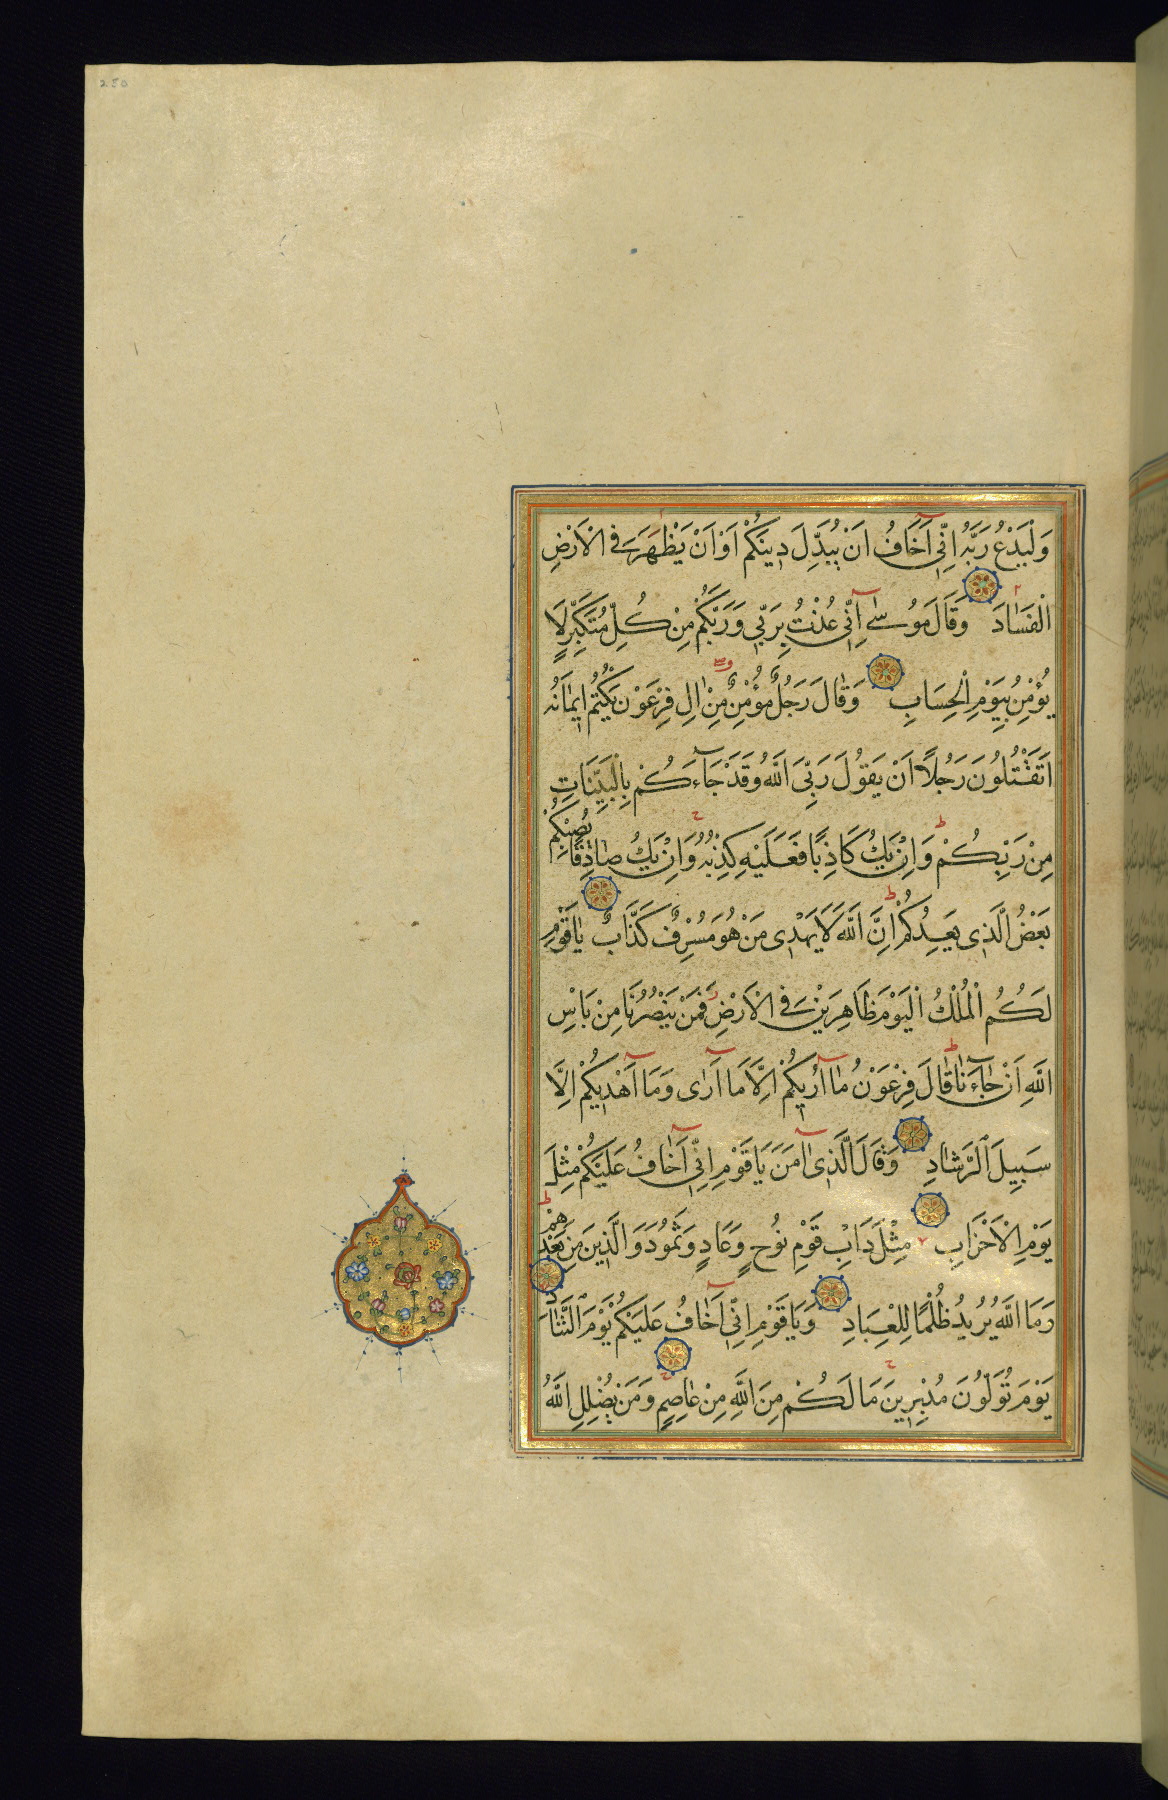 250
وَلْيَدْعُ رَبَّهُ اِنّٖٓي اَخَافُ اَنْ يُبَدِّلَ دٖينَكُمْ اَوْ اَنْ يَظْهَرَ فِي الْاَرْضِ
الْفَسَادَ وَقَالَ مُوسٰٓى اِنّٖي عُذْتُ بِرَبّٖي وَرَبِّكُمْ مِنْ كُلِّ مُتَكَبِّرٍ لَا
يُؤْمِنُ بِيَوْمِ الْحِسَابِ وَقَالَ رَجُلٌ مُؤْمِنٌ مِنْ اٰلِ فِرْعَوْنَ يَكْتُمُ اٖيمَانَهُ
اَتَقْتُلُونَ رَجُلًا اَنْ يَقُولَ رَبِّيَ اللّٰهُ وَقَدْ جَآءَكُمْ بِالْبَيِّنَاتِ
مِنْ رَبِّكُمْ وَاِنْ يَكُ كَاذِبًا فَعَلَيْهِ كَذِبُهُ وَاِنْ يَكُ صَادِقًا يُصِبْكُمْ
بَعْضُ الَّذٖي يَعِدُكُمْ اِنَّ اللّٰهَ لَا يَهْدٖي مَنْ هُوَ مُسْرِفٌ كَذَّابٌ يَا قَوْمِ
لَكُمُ الْمُلْكُ الْيَوْمَ ظَاهِرٖينَ فِي الْاَرْضِ فَمَنْ يَنْصُرُنَا مِنْ بَاْسِ
اللّٰهِ اِنْ جَآءَنَا قَالَ فِرْعَوْنُ مَآ اُرٖيكُمْ اِلَّا مَآ اَرٰى وَمَآ اَهْدٖيكُمْ اِلَّا
سَبٖيلَ الرَّشَادِ وَقَالَ الَّذٖٓي اٰمَنَ يَا قَوْمِ اِنّٖٓي اَخَافُ عَلَيْكُمْ مِثْلَ
يَوْمِ الْاَحْزَابِ مِثْلَ دَاْبِ قَوْمِ نُوحٍ وَعَادٍ وَثَمُودَ وَالَّذٖينَ مِنْ بَعْدِهِمْ
وَمَا اللّٰهُ يُرٖيدُ ظُلْمًا لِلْعِبَادِ وَيَا قَوْمِ اِنّٖٓي اَخَافُ عَلَيْكُمْ يَوْمَ التَّنَادِ
يَوْمَ تُوَلُّونَ مُدْبِرٖينَ مَا لَكُمْ مِنَ اللّٰهِ مِنْ عَاصِمٍ وَمَنْ يُضْلِلِ اللّٰهُ